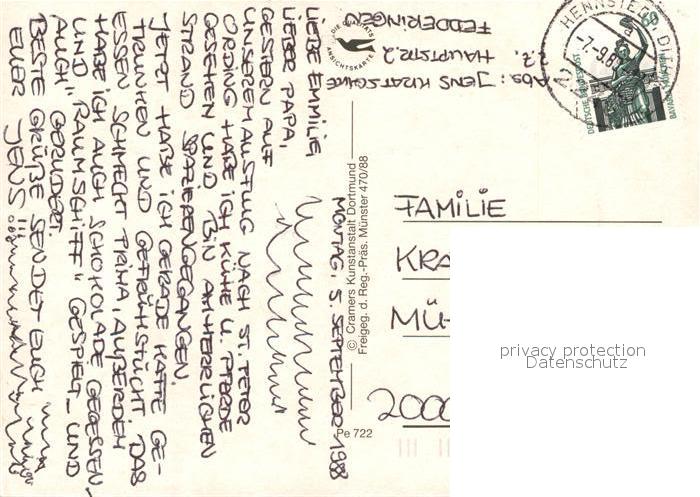 MONTAG, 5. SEPTEMBER 1988
LIEBE EMILIE,
LIEBER PAPA,
GESTERN AUF
UNSEREM AUSFLUG NACH ST. PETER
ORDING HABE ICH KÜHE U. PFERDE
GESEHEN UND BIN AM HERRLICHEN
STRAND SPAZIERENGEGANGEN.
JETZT HABE ICH GERADE KAFFE GE-
TRUNKEN UND GEFRÜHSTÜCKT. DAS
ESSEN SCHMECKT PRIMA, AUßERDEM
HABE ICH AUCH SCHOKOLADE GEGESSEN,
UND "RAUMSCHIFF" GESPIELT – UND
AUCH GERUDERT.
BESTE GRÜßE SENDET EUCH
EUER JENS!!!
Abs: JENS KRATSCHKE
HAUPTSTR. 2
FEDDERINGEN
DIE QUALITÄTS
ANSICHTSKARTE
© Cramers Kunstanstalt Dortmund
Freigeg. d. Reg.-Präs. Münster 470/88
Pe 722
HENNSTEDT, DITHM
-7.-9.88
60
DEUTSCHE BUNDESPOST
BAVARIA MÜNCHEN
FAMILIE
KRA
MÜ
2000
privacy protection
Datenschutz